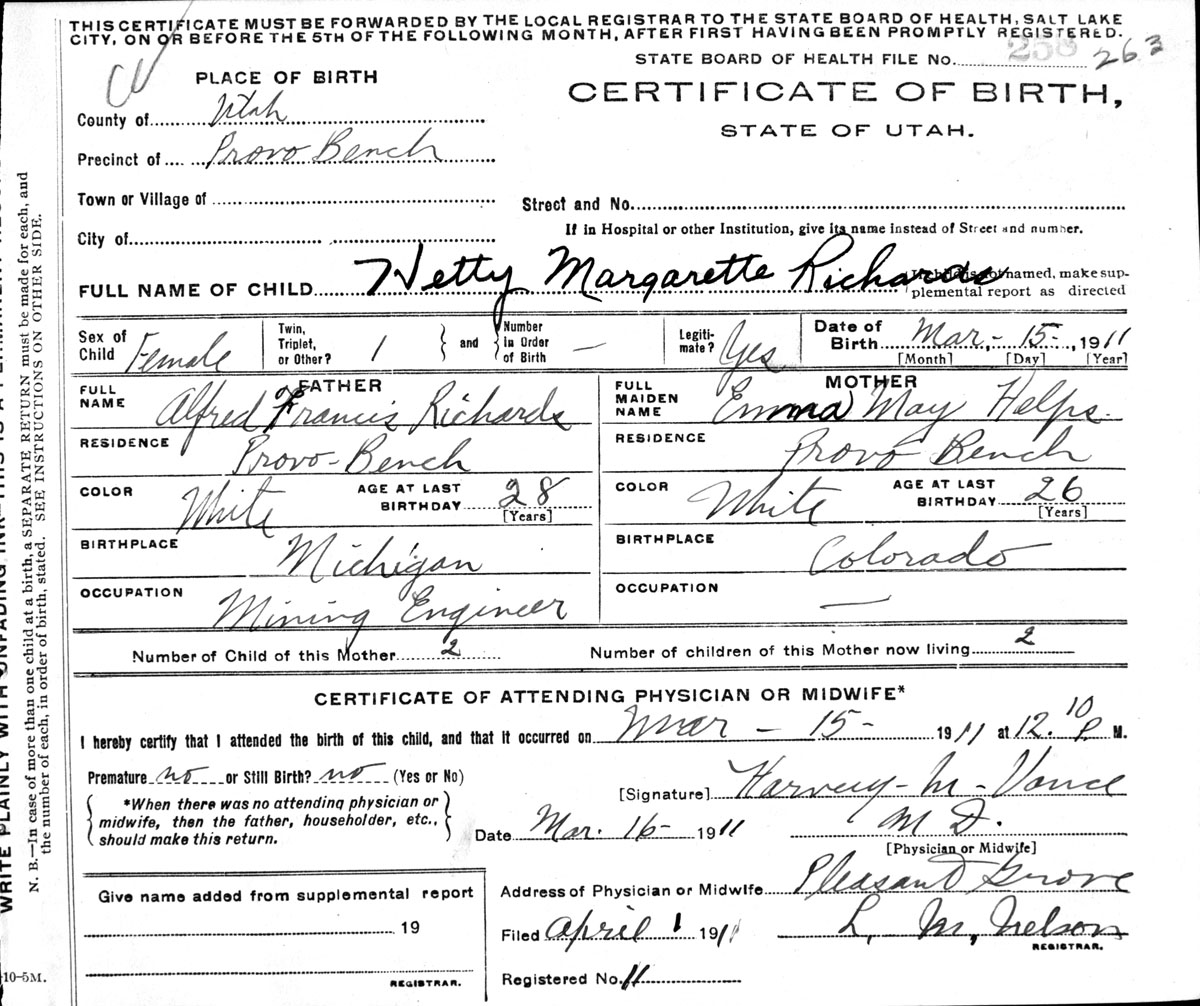 THIS CERTIFICATE MUST BE FORWARDED BY THE LOCAL REGISTRAR TO THE STATE BOARD OF HEALTH, SALT LAKE
CITY, ON OR BEFORE THE 5TH OF THE FOLLOWING MONTH, AFTER FIRST HAVING BEEN PROMPTLY REGISTERED.
STATE BOARD OF HEALTH FILE No. 258 263
PLACE OF BIRTH
CERTIFICATE OF BIRTH,
STATE OF UTAH.
County of Utah
Precinct of Provo Bench
Town or Village of
Street and No.
If in Hospital or other Institution, give its name instead of Street and number.
City of
FULL NAME OF CHILD Hetty Margarette Richards
named, make sup-
plemental report as directed
Sex of Child Female
Twin, Triplet, or Other? 1
and Number in Order of Birth —
Legiti-mate? Yes
Date of Birth Mar. - 15 - , 1911
[Month] [Day] [Year]
FATHER
FULL NAME Alfred Francis Richards
RESIDENCE Provo-Bench
COLOR White AGE AT LAST BIRTHDAY 28
[Years]
BIRTHPLACE Michigan
OCCUPATION Mining Engineer
MOTHER
FULL MAIDEN NAME Emma May Helps.
RESIDENCE Provo Bench
COLOR White AGE AT LAST BIRTHDAY 26
[Years]
BIRTHPLACE Colorado
OCCUPATION —
Number of Child of this Mother 2 Number of children of this Mother now living 2
CERTIFICATE OF ATTENDING PHYSICIAN OR MIDWIFE*
I hereby certify that I attended the birth of this child, and that it occurred on Mar - 15 - 1911 at 12.10 P. M.
Premature no or Still Birth? no (Yes or No)
[Signature] Harvey - M - Vance
*When there was no attending physician or
midwife, then the father, householder, etc.,
should make this return.
Date Mar. 16 - 1911 M D.
[Physician or Midwife]
Address of Physician or Midwife Pleasant Grove
Give name added from supplemental report
19
REGISTRAR.
Filed April 1 1911 L. M. Nelson
REGISTRAR.
Registered No. 11
10-5M.
WRITE PLAINLY WITH UNFADING INK—THIS IS A PERMANENT
N. B.—In case of more than one child at a birth, a SEPARATE RETURN must be made for each, and
the number of each, in order of birth, stated. SEE INSTRUCTIONS ON OTHER SIDE.